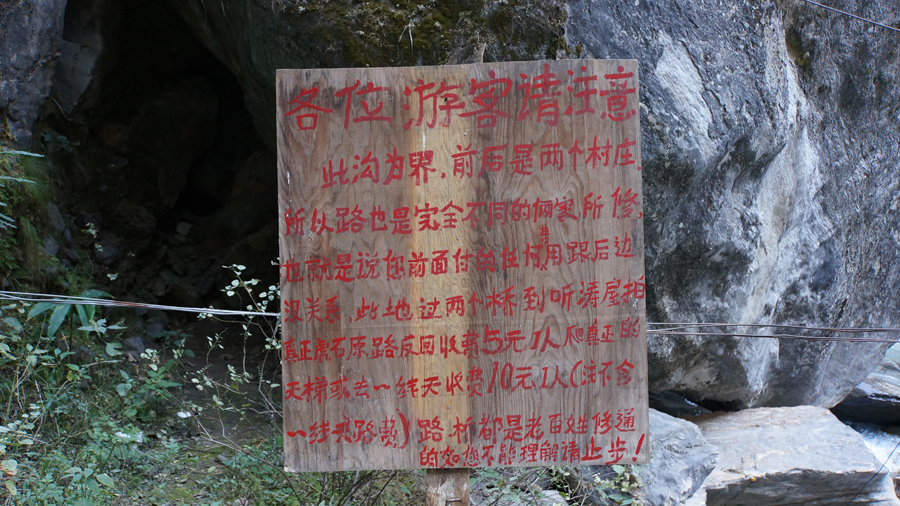 各位游客请注意
此沟为界，前后是两个村庄
所以路也是完全不同的俩家所修，
也就是说你前面付的任何费用跟后边
没关系，此地过两个桥到听涛屋拍
真正虎石原路反回收费5元1人爬真正的
天梯或去一线天收费10元1人(注不含
一线天路费)路.桥都是老百姓修通
的如您不能理解请止步！